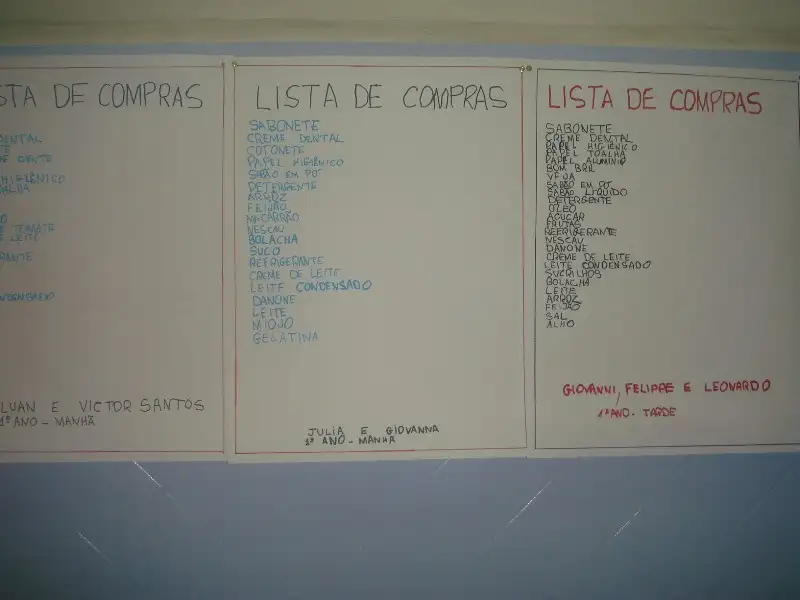 STA DE COMPRAS
DENTAL
TE
DE DENTE
HIGIÊNICO
OALHA
O
E TOMATE
E LEITE
RANTE
NDENSADO
LUAN E VICTOR SANTOS
1º ANO - MANHÃ
LISTA DE COMPRAS
SABONETE
CREME DENTAL
COTONETE
PAPEL HIGIÊNICO
SABÃO EM PÓ
DETERGENTE
ARROZ
FEIJÃO
MACARRÃO
NESCAU
BOLACHA
SUCO
REFRIGERANTE
CREME DE LEITE
LEITE CONDENSADO
DANONE
LEITE
MIOJO
GELATINA
JULIA E GIOVANNA
1º ANO - MANHÃ
LISTA DE COMPRAS
SABONETE
CREME DENTAL
PAPEL HIGIÊNICO
PAPEL TOALHA
PAPEL ALUMINIO
BOM BRIL
VEJA
SABÃO EM PÓ
SABÃO LIQUIDO
DETERGENTE
ÓLEO
AÇUCAR
FRUTAS
REFRIGERANTE
NESCAU
DANONE
CREME DE LEITE
LEITE CONDENSADO
SUCRILHOS
BOLACHA
LEITE
ARROZ
FEIJÃO
SAL
ALHO
GIOVANNI, FELIPPE E LEONARDO
1º ANO - TARDE